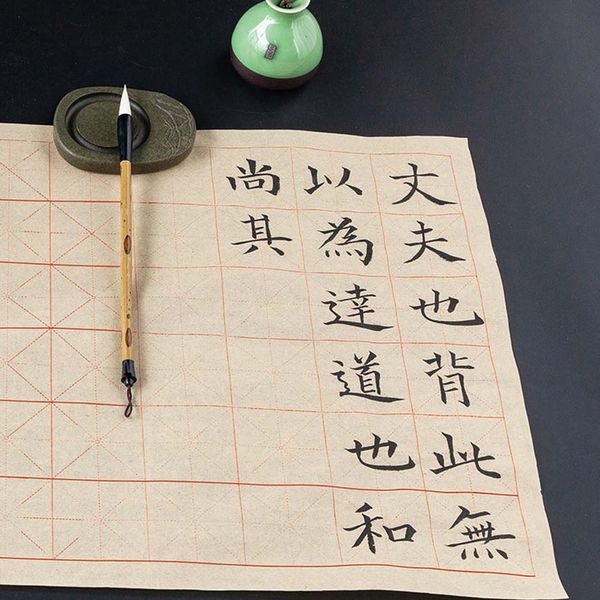 丈夫也背此無
以為達道也和
尚其